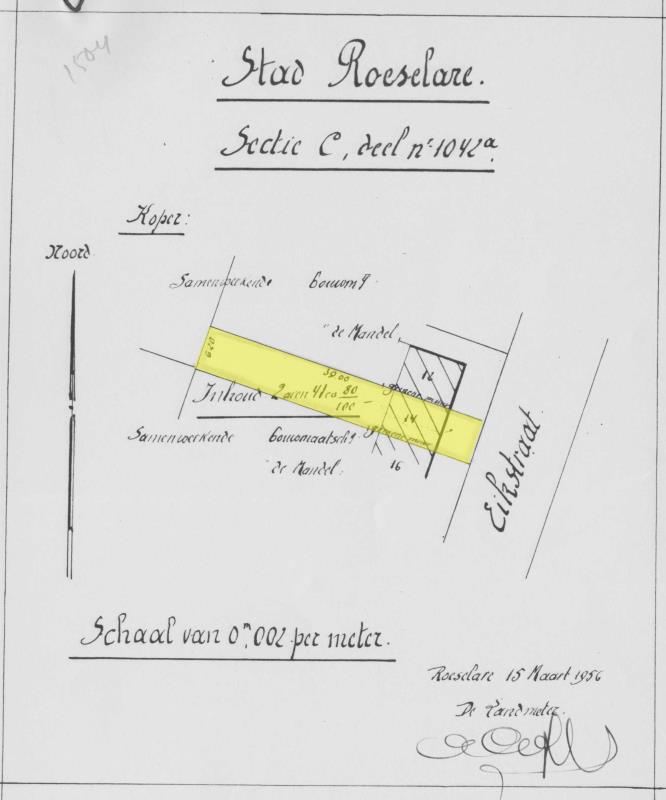 1504
Stad Roeselare.
Sectie C, deel nr 1042a.
Koper:
Noord
Samenwerkende Bouwmij
"de Mandel
6.20
39.00
12
gemene muur
Inhoud 2 aren 41 ca 80/100
14
gemene muur
Samenwerkende Bouwmaatschij
"de Mandel.
16
Eikstraat.
Schaal van 0m,002 per meter.
Roeselare 15 Maart 1956
De Landmeter.